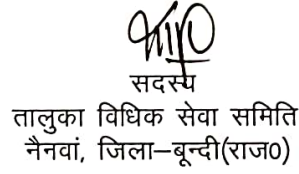 सदस्य
तालुका विधिक सेवा समिति
नैनवां, जिला–बून्दी(राज0)